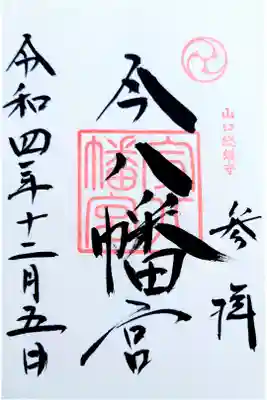 山口総鎮守
参拝
今八幡宮
令和四年十二月五日